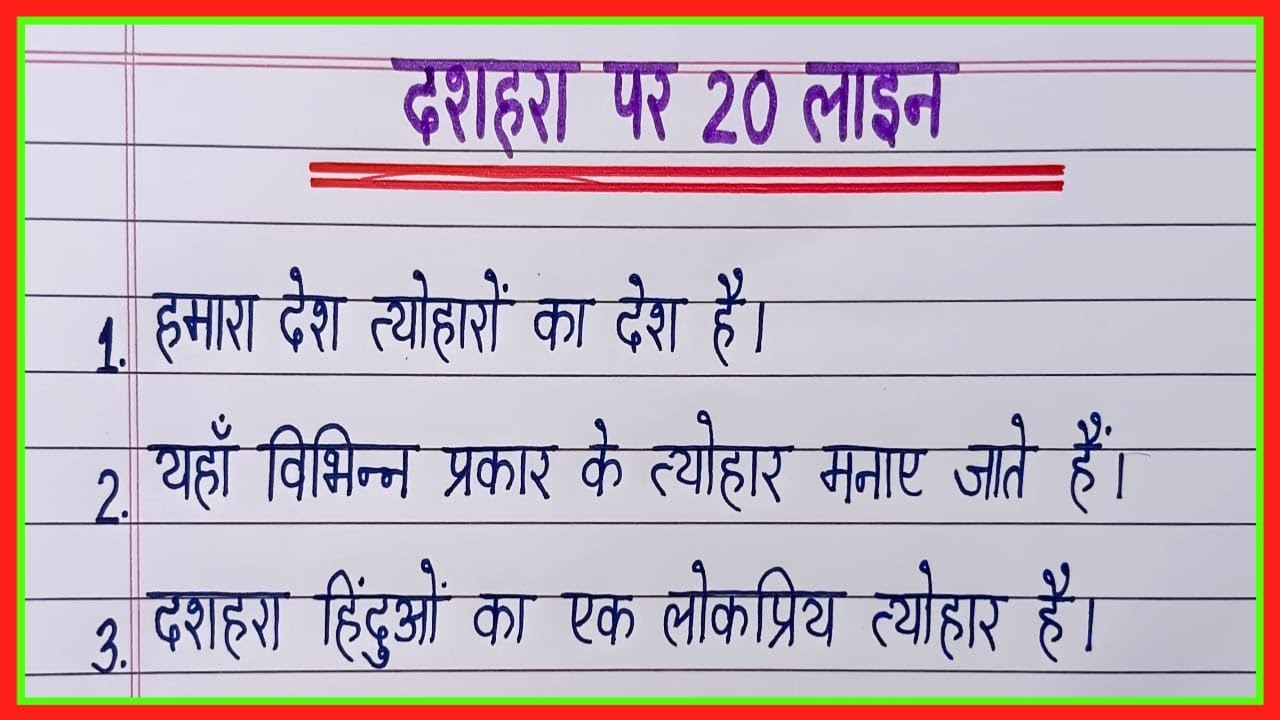 दशहरा पर 20 लाइन
1. हमारा देश त्योहारों का देश है।
2. यहाँ विभिन्न प्रकार के त्योहार मनाए जाते हैं।
3. दशहरा हिंदुओं का एक लोकप्रिय त्योहार है।